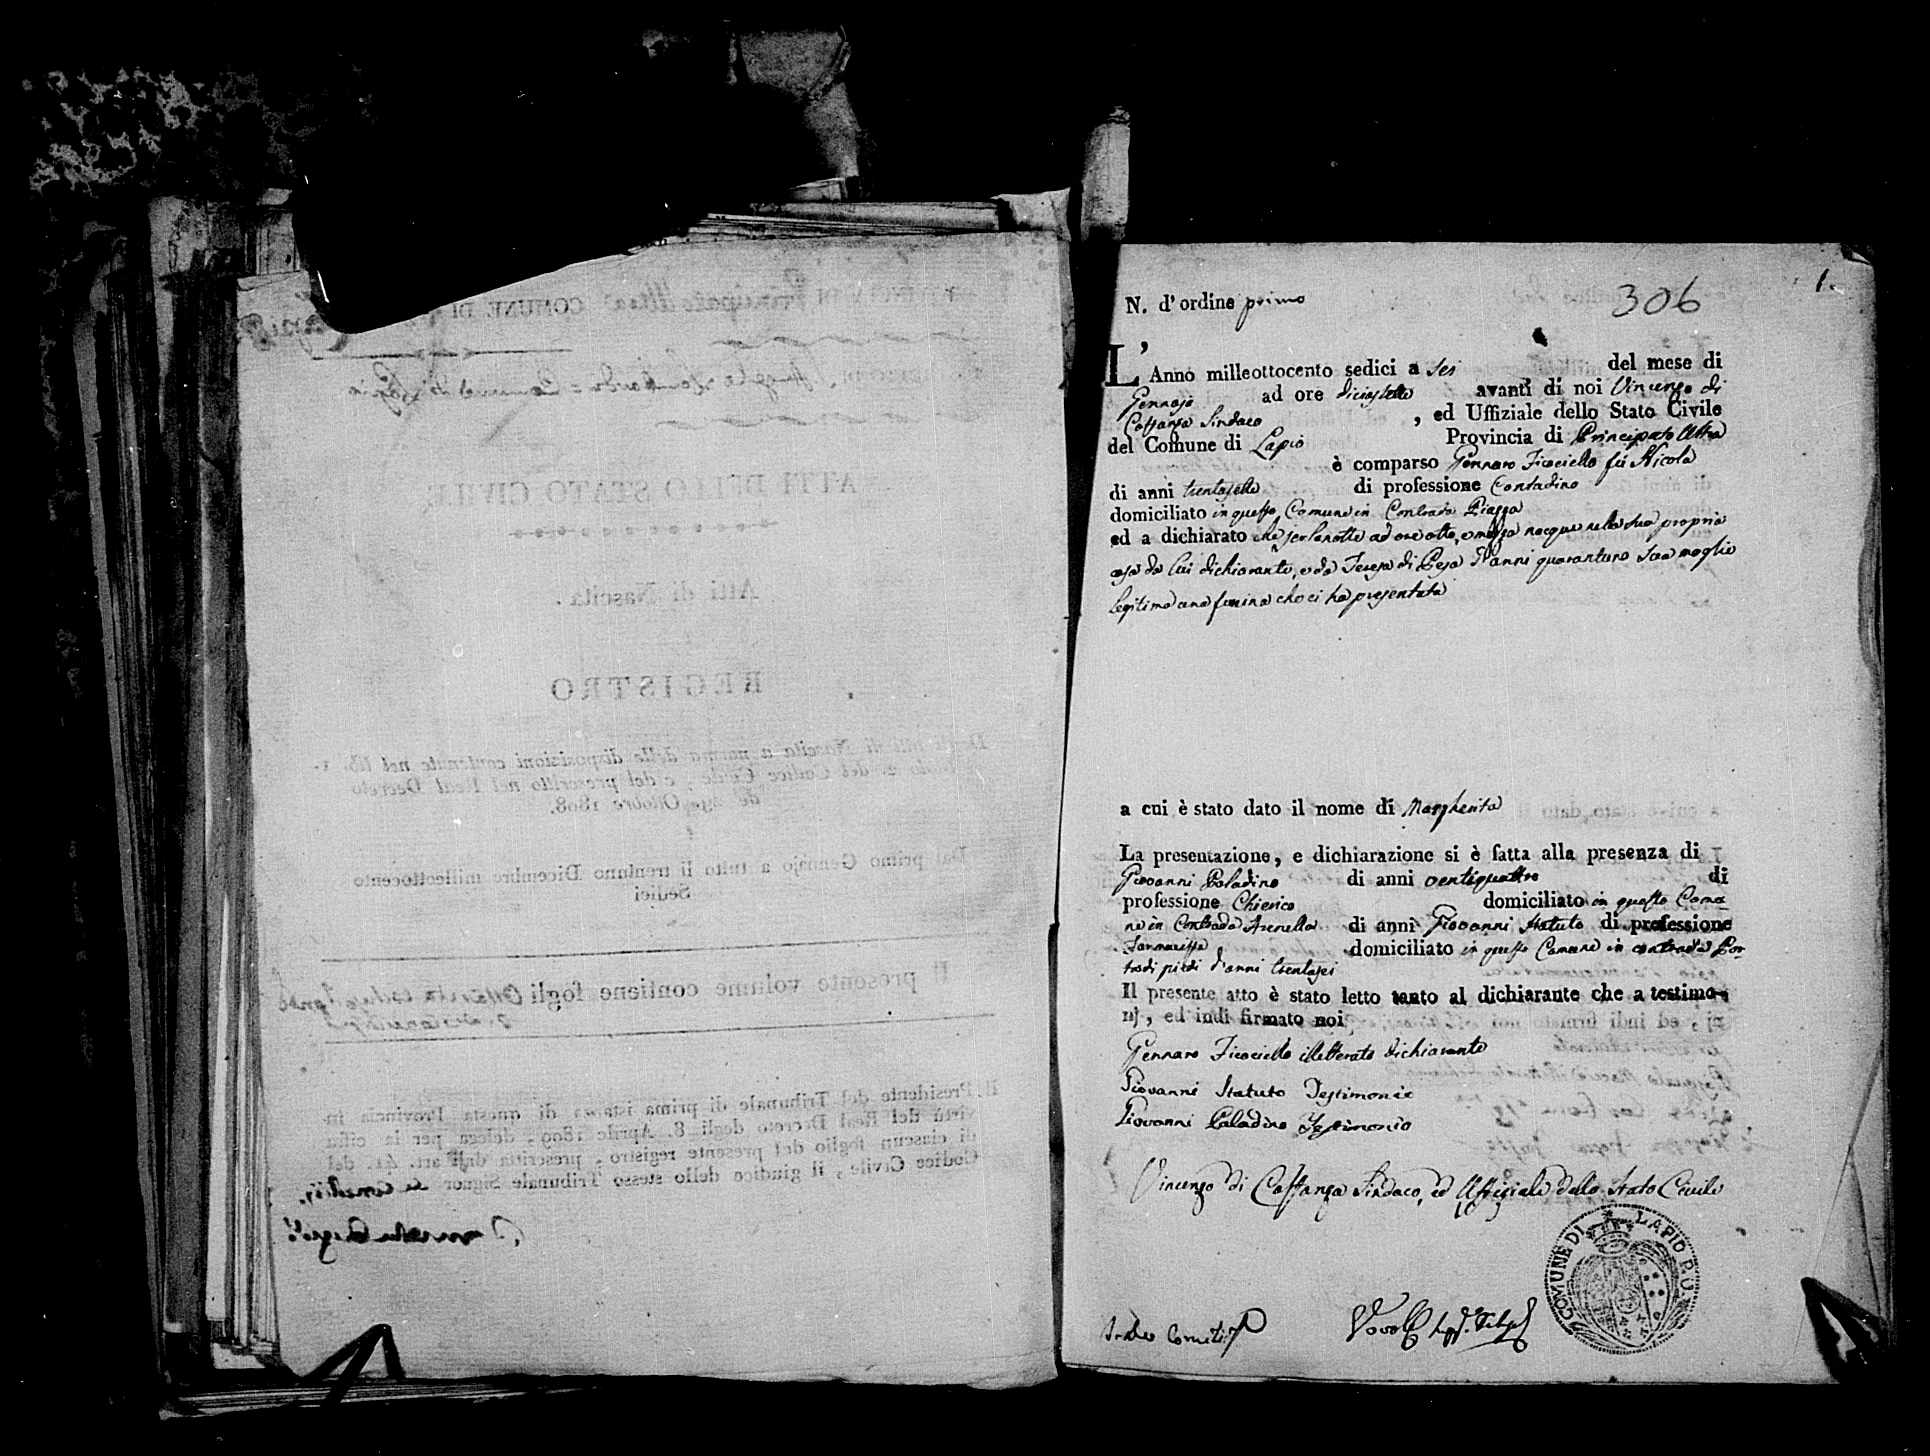 306
1.
N. d'ordine primo
L'Anno milleottocento sedici a sei del mese di
Gennajo ad ore diciasette avanti di noi Vincenzo di
Caffanza Sindaco, ed Uffiziale dello Stato Civile
del Comune di Lapio Provincia di Principato Ultra
è comparso Gennaro Ficociello fù Nicola
di anni trentasette di professione Contadino
domiciliato in questo Comune in Contrada Piazza
ed a dichiarato che jer la notte ad ore otto, e mezza nacque nella sua propria
casa da lui dichiarante, e da Teresa di Pesa d'anni quarantuno sua moglie
legitima una femina che ci ha presentata
a cui è stato dato il nome di Margherita
La presentazione, e dichiarazione si è fatta alla presenza di
Giovanni Paladino di anni ventiquattro di
professione Chierico domiciliato in questo Comu-
ne in Contrada Arenella di anni Giovanni Statuto di professione
Farmacista domiciliato in questo Comune in contrada
d'anni trentasei
Il presente atto è stato letto tanto al dichiarante che a testimo-
nj, ed indi firmato noi
Gennaro Ficociello illetterato dichiarante
Giovanni Statuto Testimonio
Giovanni Paladino Testimonio
Vincenzo di Caffanza Sindaco, ed Uffiziale dello Stato Civile
COMUNE DI LAPIO P. U.
COMUNE DI
ATTI DELLO STATO CIVILE
Atti di Nascita.
REGISTRO
Degli atti di Nascita a norma delle disposizioni contenute nel lib. 1.
del Codice Civile, e del prescritto nel Real Decreto
de' 29. Ottobre 1808.
Dal primo Gennajo a tutto li trentuno Dicembre milleottocento
Sedici
Il presente volume contiene fogli
Il Presidente del Tribunale di prima istanza di questa Provincia in
virtù del Real Decreto degli 8. Aprile 1809, delega per la cifra
di ciascun foglio del presente registro, prescritta dall'art. 41. del
Codice Civile, il giudice dello stesso Tribunale Signor